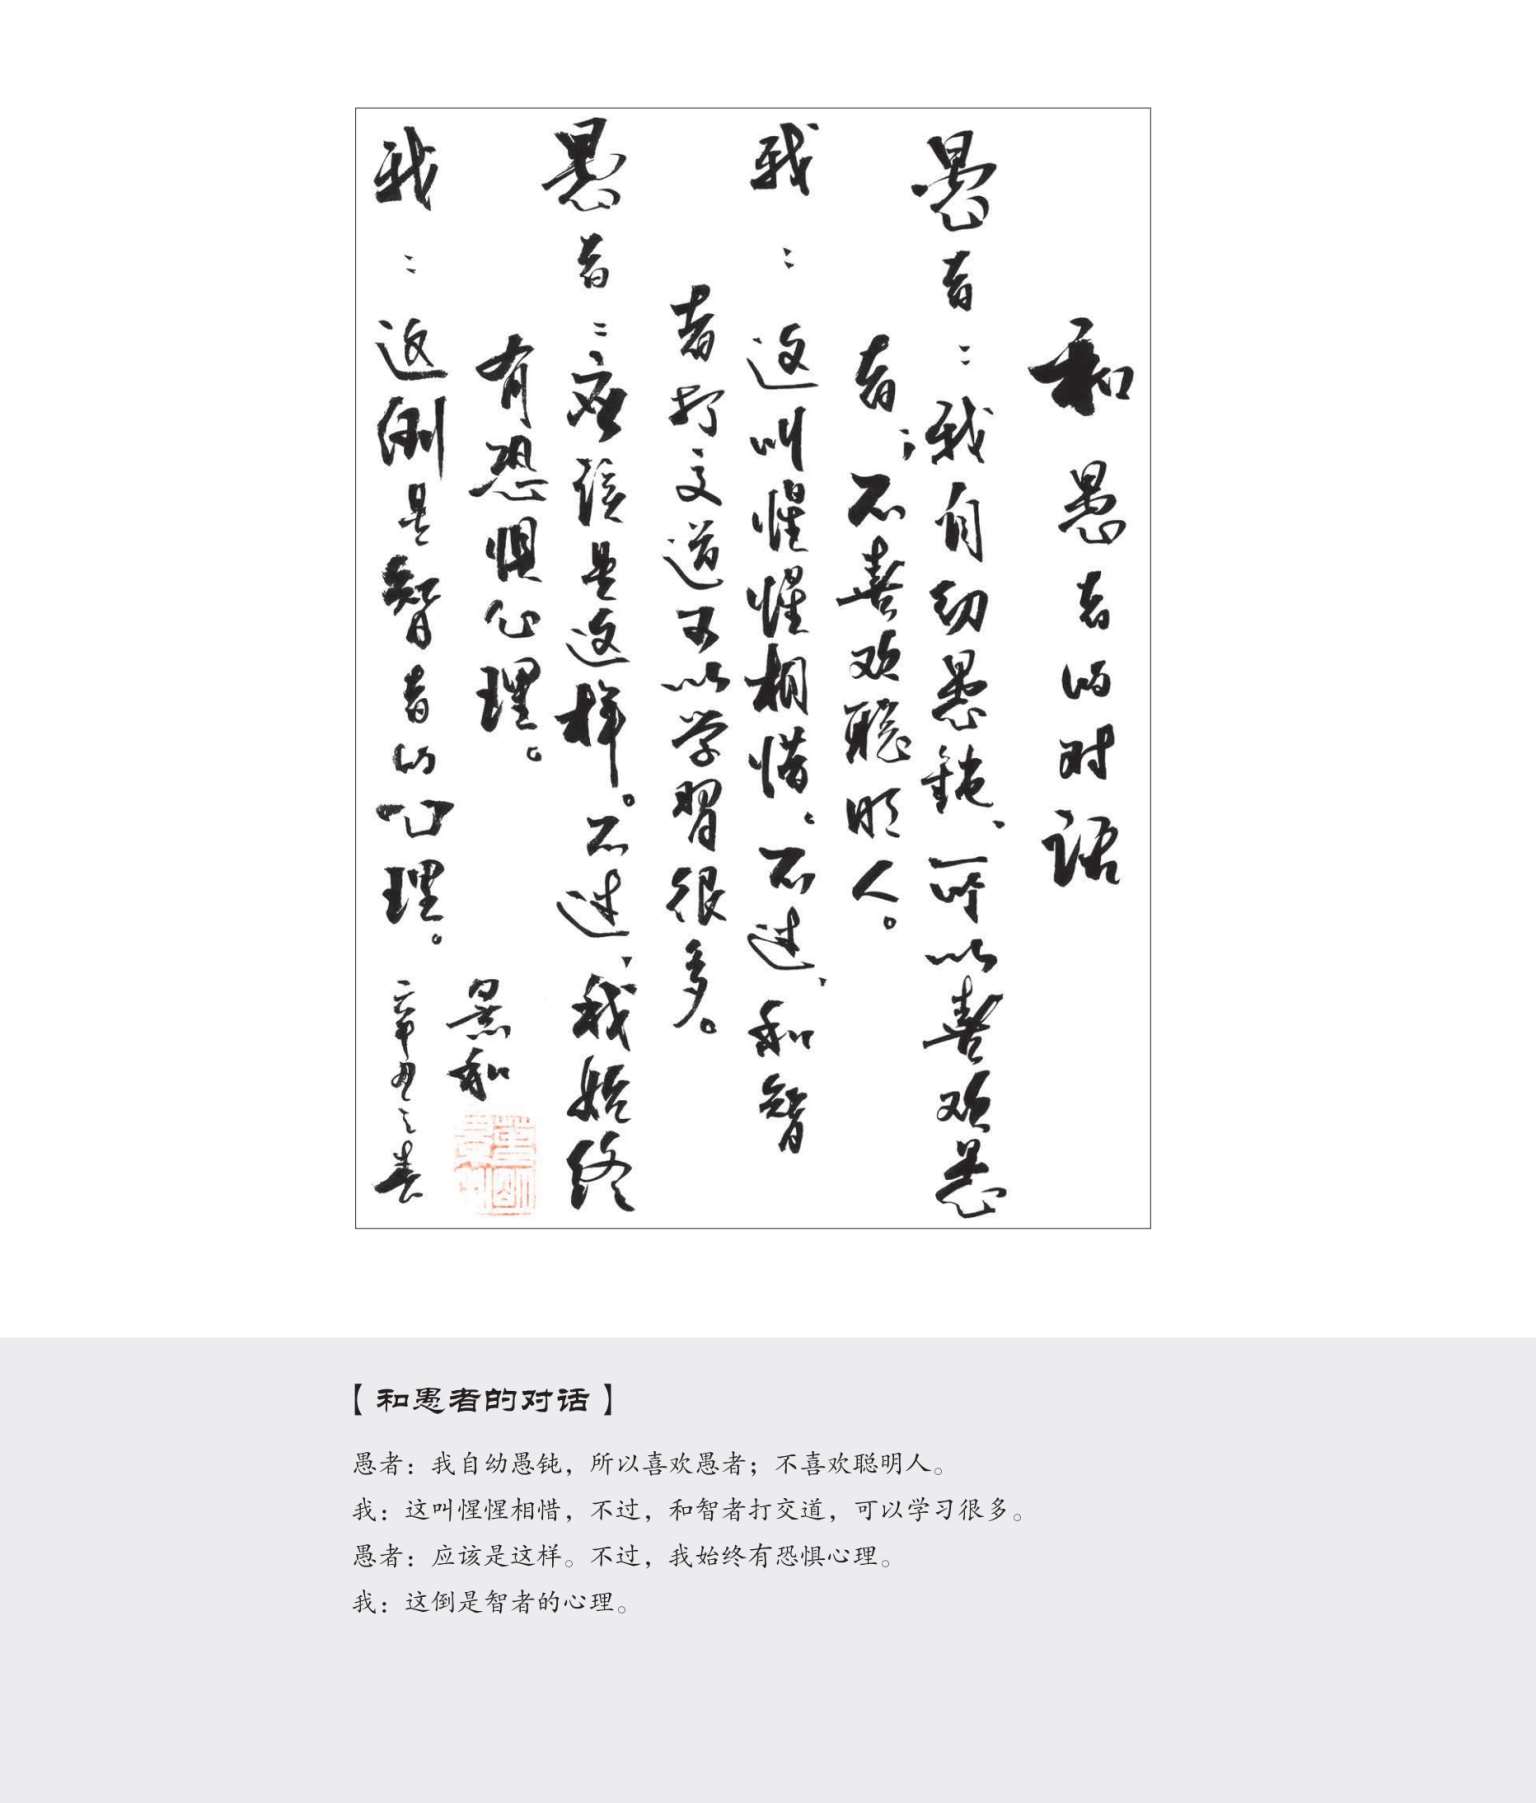 和愚者的对话
愚者：我自幼愚钝、所以喜欢愚
者；不喜欢聪明人。
我：这叫惺惺相惜。不过、和智
者打交道可以学习很多。
愚者：应该是这样。不过、我始终
有恐惧心理。
我：这倒是智者的心理。
景和
辛丑之春
【和愚者的对话】
愚者：我自幼愚钝，所以喜欢愚者；不喜欢聪明人。
我：这叫惺惺相惜，不过，和智者打交道，可以学习很多。
愚者：应该是这样。不过，我始终有恐惧心理。
我：这倒是智者的心理。